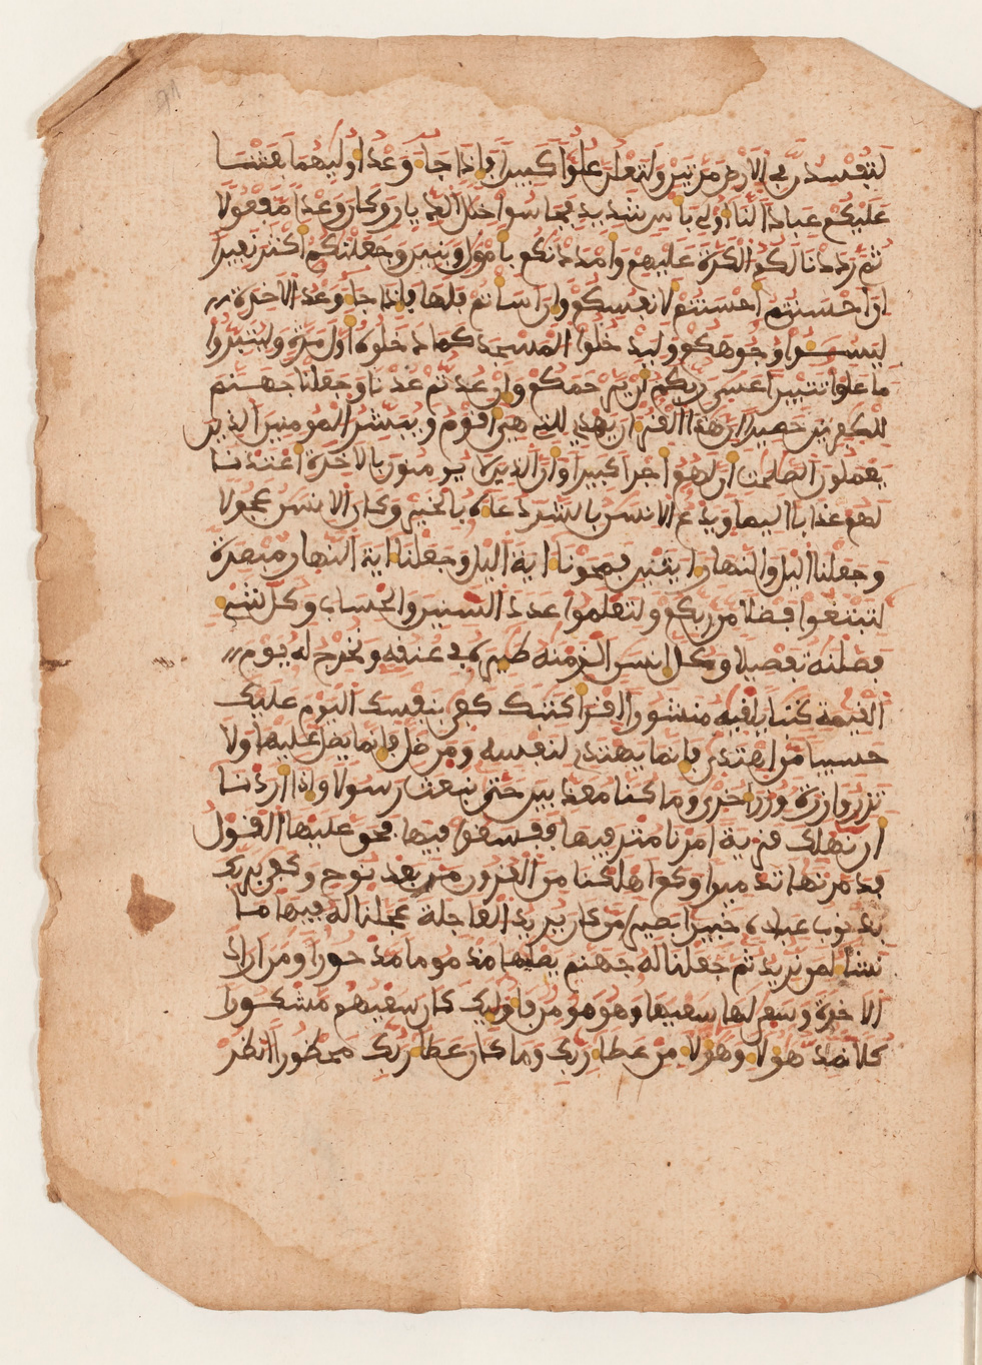 لتفسدن في الارض مرتين ولتعلن علوا كبيرا فاذا جا وعد اوليهما بعثنا
عليكم عبادا لنا اولي باس شديد فجاسوا خلل الديار وكان وعدا مفعولا
ثم رددنا لكم الكرة عليهم وامددنكم باموال وبنين وجعلنكم اكثر نفيرا
ان احسنتم احسنتم لانفسكم وان اساتم فلها فاذا جا وعد الاخرة
ليسـوا وجوهكم وليدخلوا المسجد كما دخلوه اول مرة وليتبروا
ما علوا تتبيرا عسى ربكم ان يرحمكم وان عدتم عدنا وجعلنا جهنم
للكفرين حصيرا ان هذا القران يهدي للتي هي اقوم ويبشر المومنين الذين
يعملون الصلحت ان لهم اجرا كبيرا وان الذين لا يومنون بالاخرة اعتدنا
لهم عذابا اليما ويدع الانسن بالشر دعاه بالخير وكان الانسن عجولا
وجعلنا اليل والنهار ايتين فمحونا اية اليل وجعلنا اية النهار مبصرة
لتبتغوا فضلا من ربكم ولتعلموا عدد السنين والحساب وكل شي
فصلنه تفصيلا وكل انسن الزمنه طيره في عنقه ونخرج له يوم
القيمة كتبا يلقيه منشورا اقرا كتبك كفى بنفسك اليوم عليك
حسيبا من اهتدى فانما يهتدي لنفسه ومن ضل فانما يضل عليها ولا
تزر وازرة وزر اخرى وما كنا معذبين حتى نبعث رسولا واذا اردنا
ان نهلك قرية امرنا مترفيها ففسقوا فيها فحق عليها القول
فدمرنها تدميرا وكم اهلكنا من القرون من بعد نوح وكفى بربك
بذنوب عباده خبيرا بصيرا من كان يريد العاجلة عجلنا له فيها ما
نشا لمن نريد ثم جعلنا له جهنم يصليها مذموما مدحورا ومن اراد
الاخرة وسعى لها سعيها وهو مومن فاوليك كان سعيهم مشكورا
كلا نمد هولا وهولا من عطا ربك وما كان عطا ربك محظورا انظر